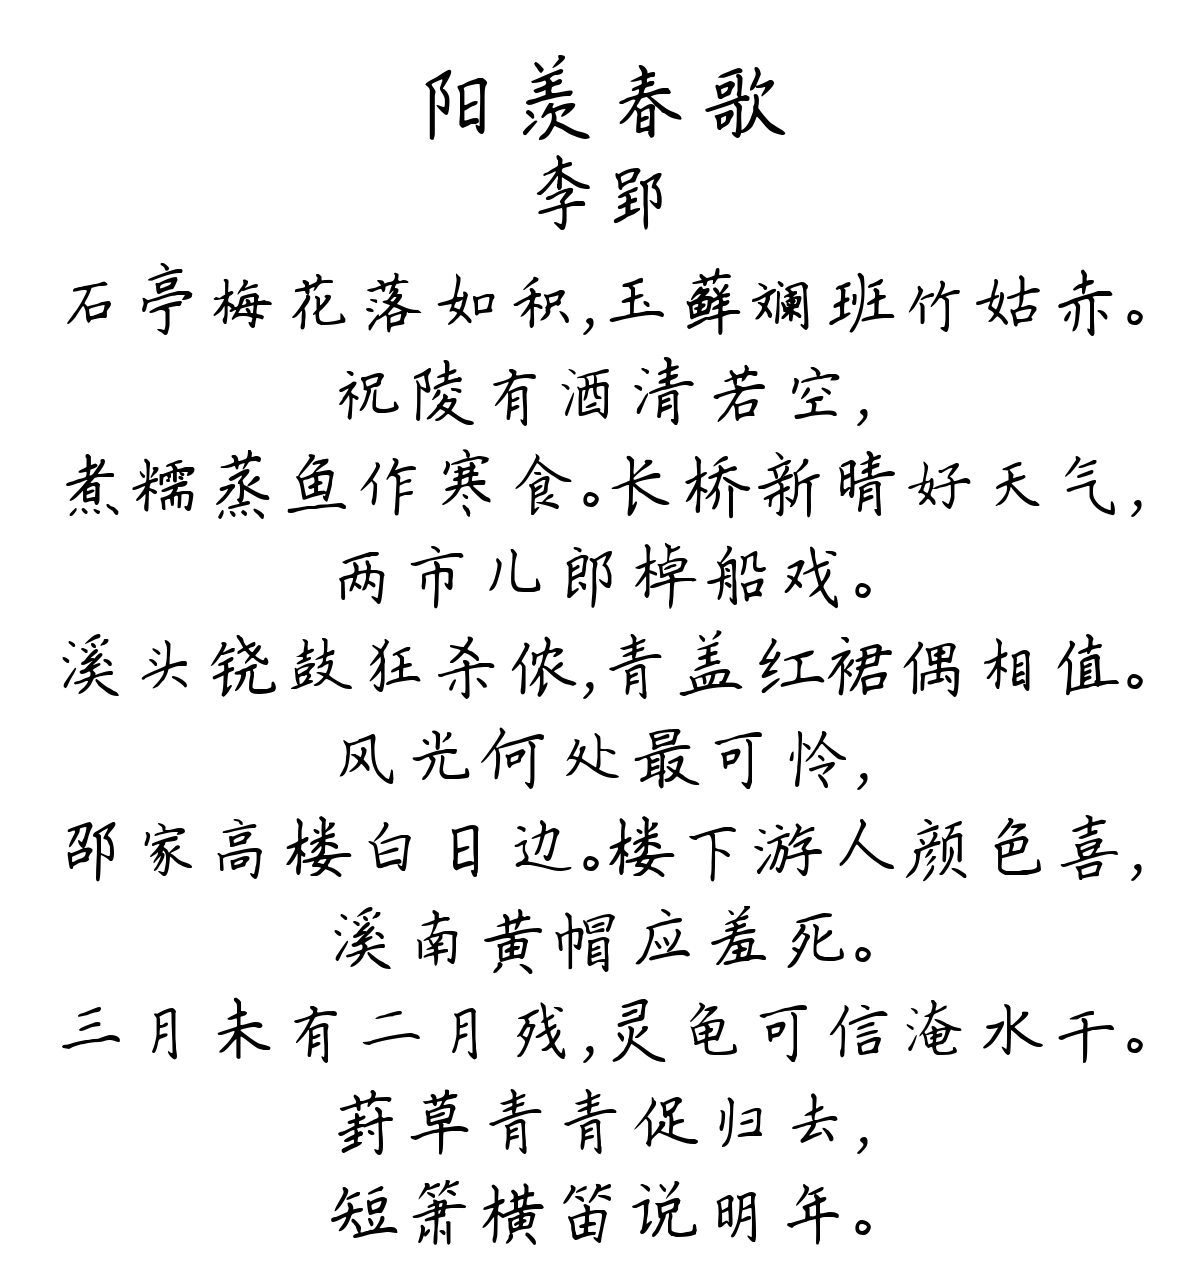 阳羡春歌
李郢
石亭梅花落如积,玉藓斓班竹姑赤。
祝陵有酒清若空,
煮糯蒸鱼作寒食。长桥新晴好天气,
两市儿郎棹船戏。
溪头铙鼓狂杀侬,青盖红裙偶相值。
风光何处最可怜,
邵家高楼白日边。楼下游人颜色喜,
溪南黄帽应羞死。
三月未有二月残,灵龟可信淹水干。
葑草青青促归去,
短箫横笛说明年。